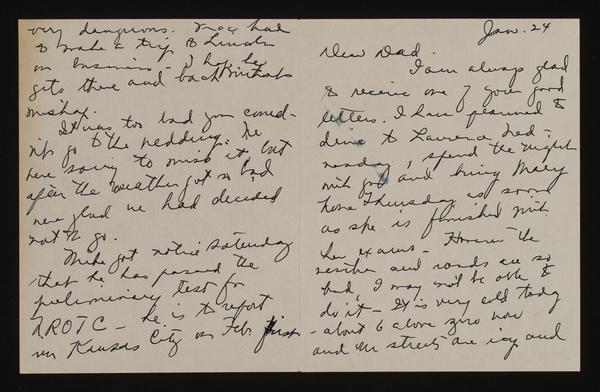 Jan. 24
Dear Dad.
I am always glad
to receive one of your good
letters. I have planned to
drive to Lawrence Wed-
nesday, spend the night
with you and bring Mary
home Thursday as soon
as she is finished with
her exams - However the
weather and roads are so
bad, I may not be able to
do it - It is very cold today
- about 6 above zero now
and the streets are icy and
very dangerous. had
to make a trip to Lincoln
on business - I hope he
gets there and back without
mishap.
It was too bad you could-
n't go to the wedding. We
were sorry to miss it but
after the weather got so bad
were glad we had decided
not to go.
Mike got notice Saturday
that he has passed the
preliminary test for
NROTC - he is to report
in Kansas City on Feb. first